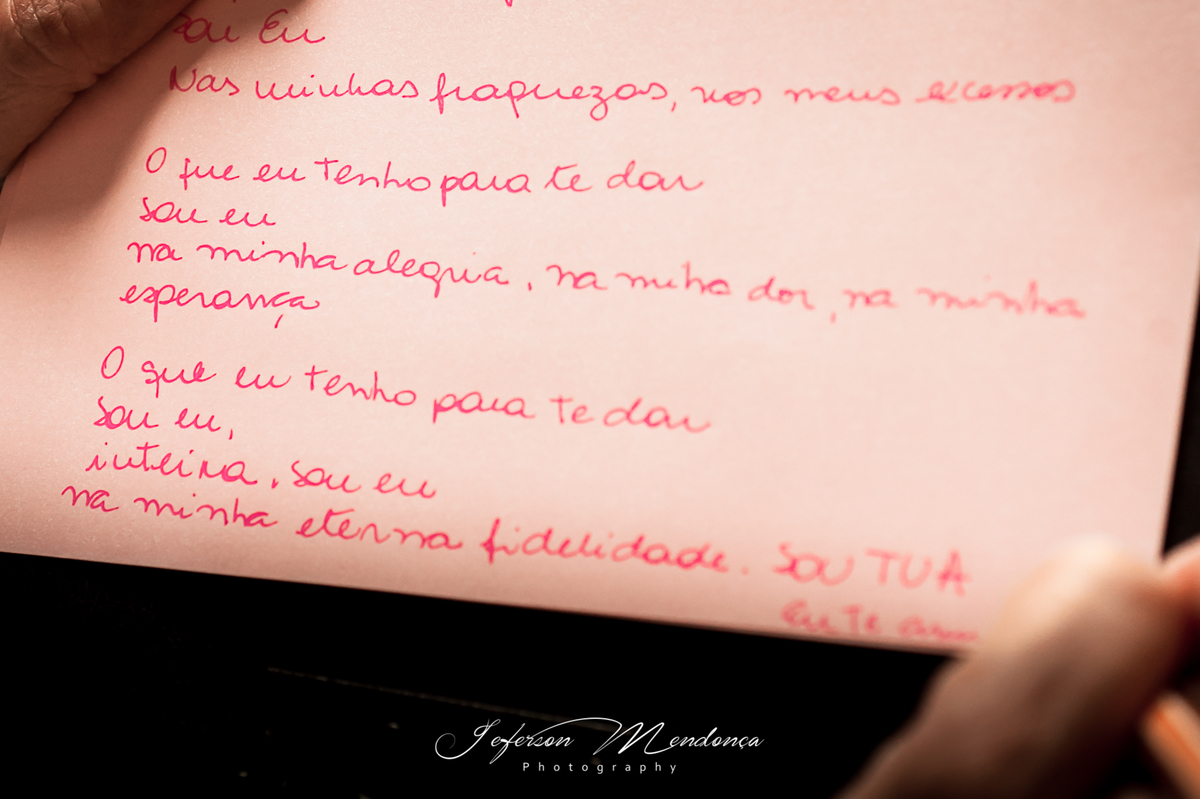 Sou Eu
Nas minhas fraquezas, nos meus excessos
O que eu tenho para te dar
sou eu
na minha alegria, na minha dor, na minha
esperança
O que eu tenho para te dar
sou eu,
inteira, sou eu
na minha eterna fidelidade. SOU TUA
Eu Te
Jeferson Mendonça
Photography